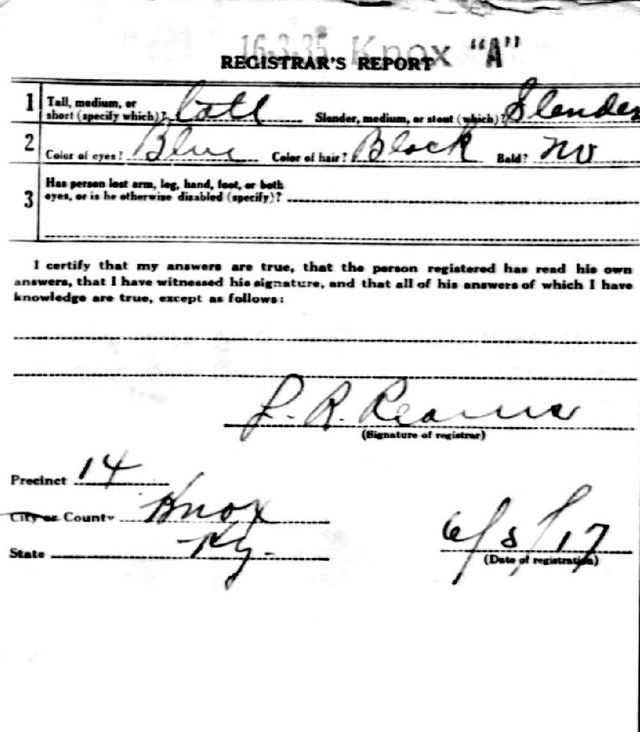 16.3.35 Knox "A"
REGISTRAR'S REPORT
1 Tall, medium, or short (specify which)? Tall Slender, medium, or stout (which)? Slender
2 Color of eyes? Blue Color of hair? Black Bald? No
3 Has person lost arm, leg, hand, foot, or both
eyes, or is he otherwise disabled (specify)?
I certify that my answers are true, that the person registered has read his own
answers, that I have witnessed his signature, and that all of his answers of which I have
knowledge are true, except as follows:
R. Reams
(Signature of registrar)
Precinct 14
City or County Knox
State Ky.
6/5/17
(Date of registration)